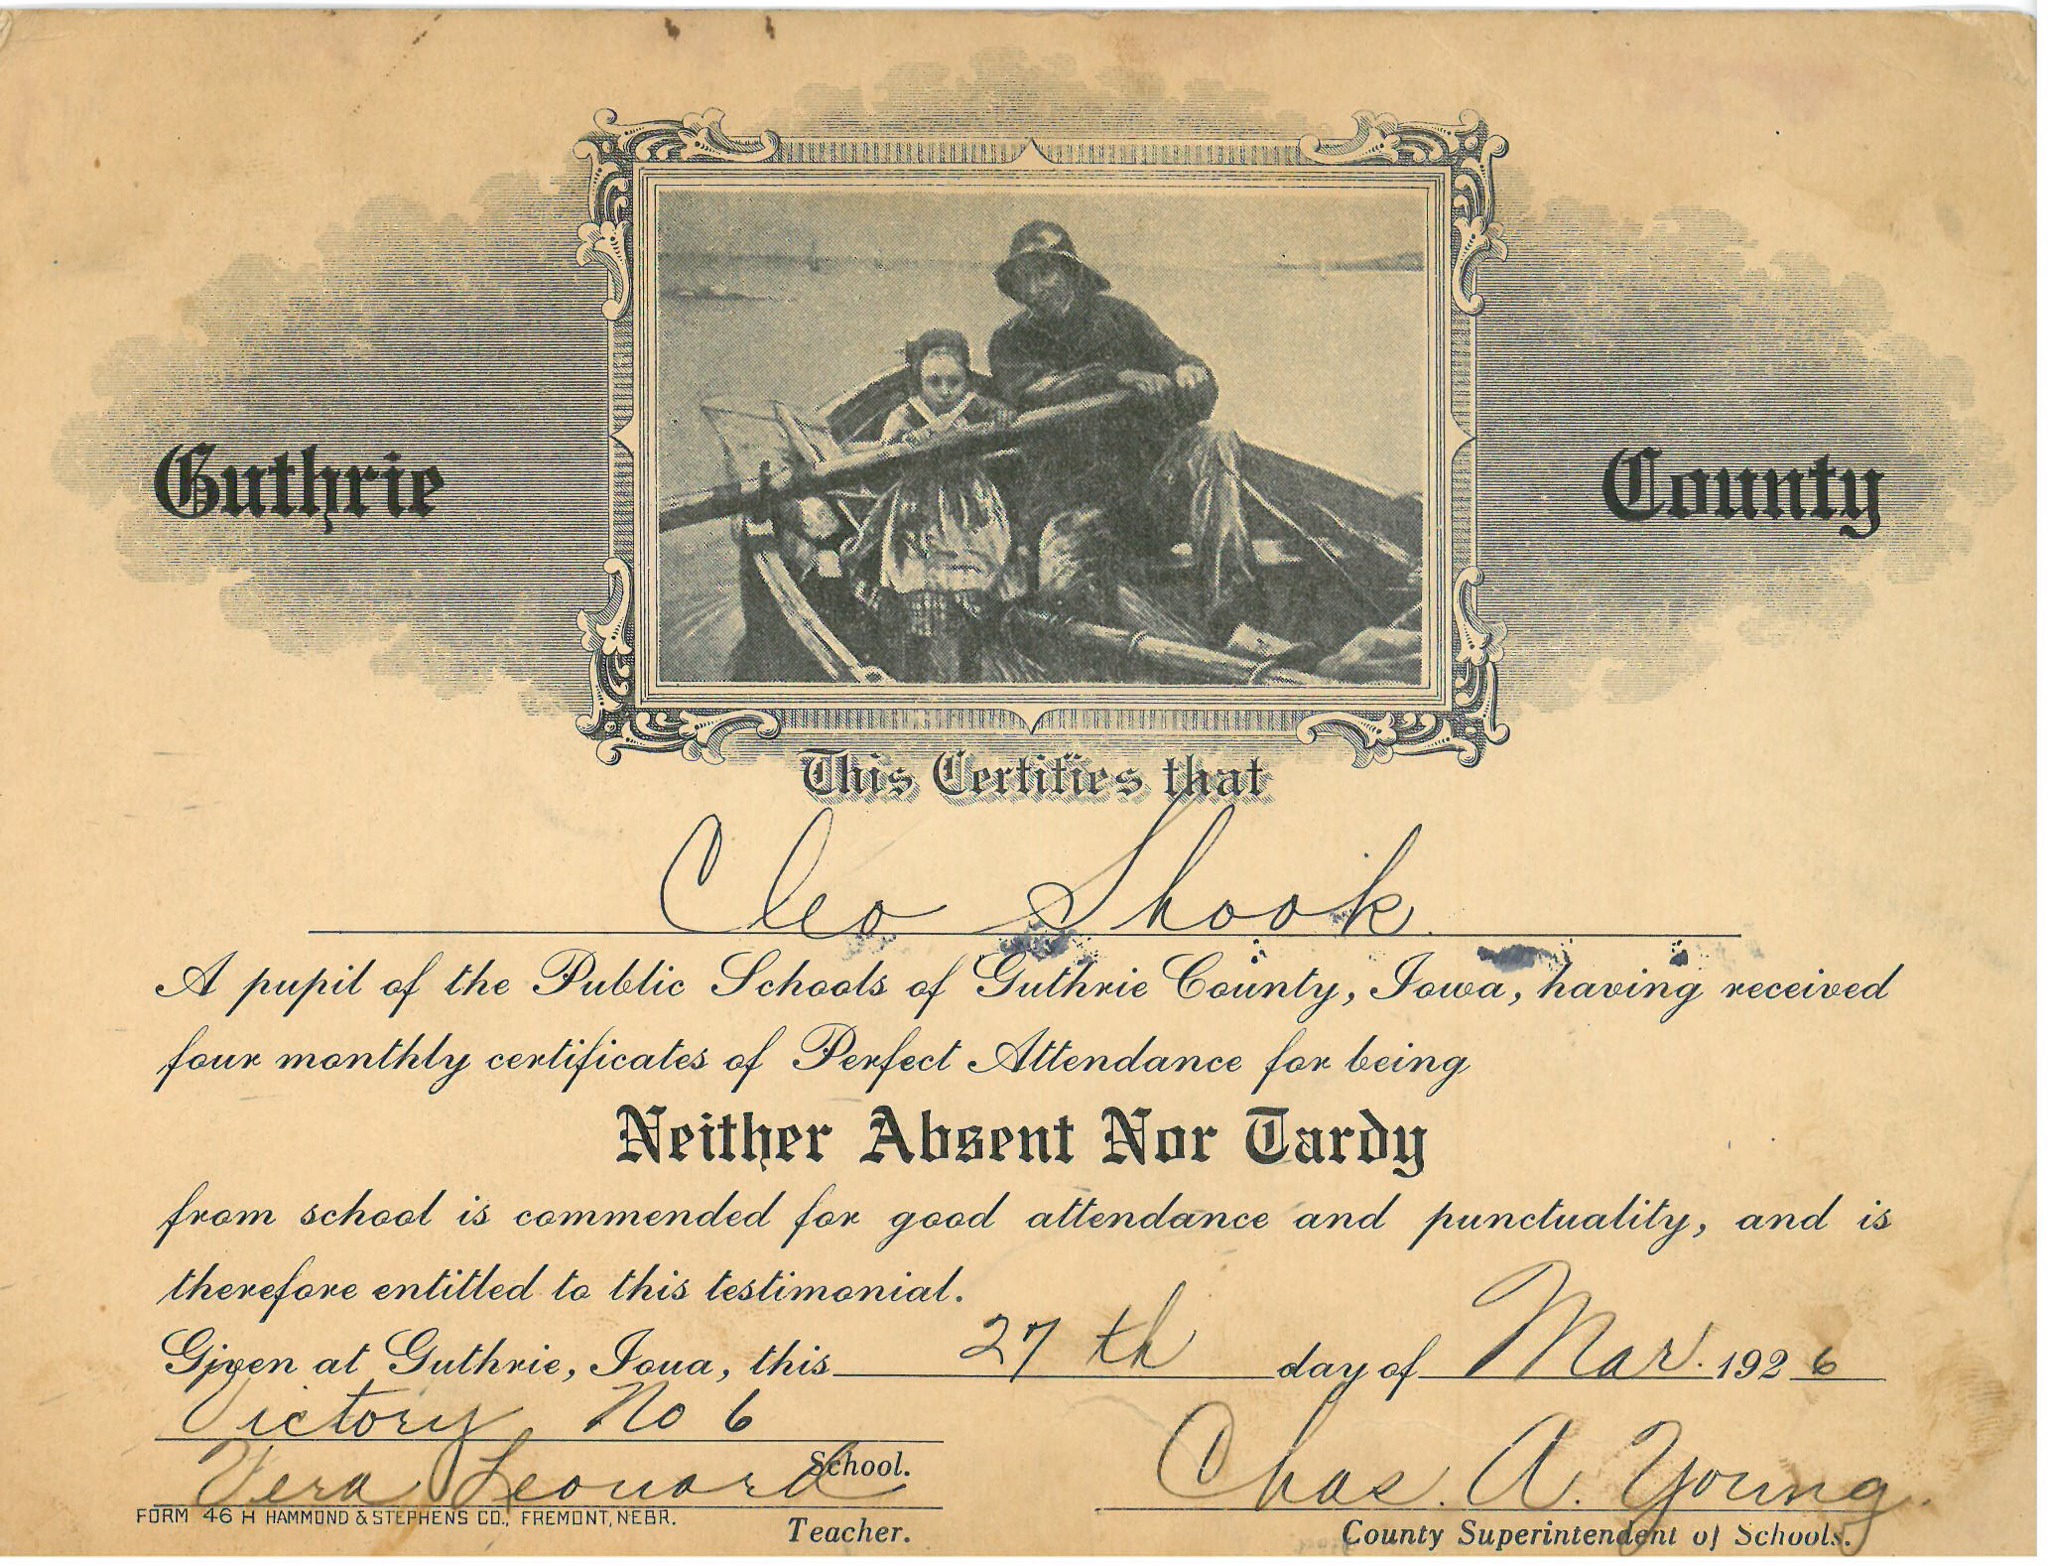 Guthrie County
This Certifies that
Cleo Shook
A pupil of the Public Schools of Guthrie County, Iowa, having received
four monthly certificates of Perfect Attendance for being
Neither Absent Nor Tardy
from school is commended for good attendance and punctuality, and is
therefore entitled to this testimonial.
Given at Guthrie, Ioua, this 27 th day of Mar. 1926
Victory No 6
School.
Vera Leonard
Chas. A. Young.
FORM 46 H HAMMOND & STEPHENS CO., FREMONT, NEBR.
Teacher.
County Superintendent of Schools.